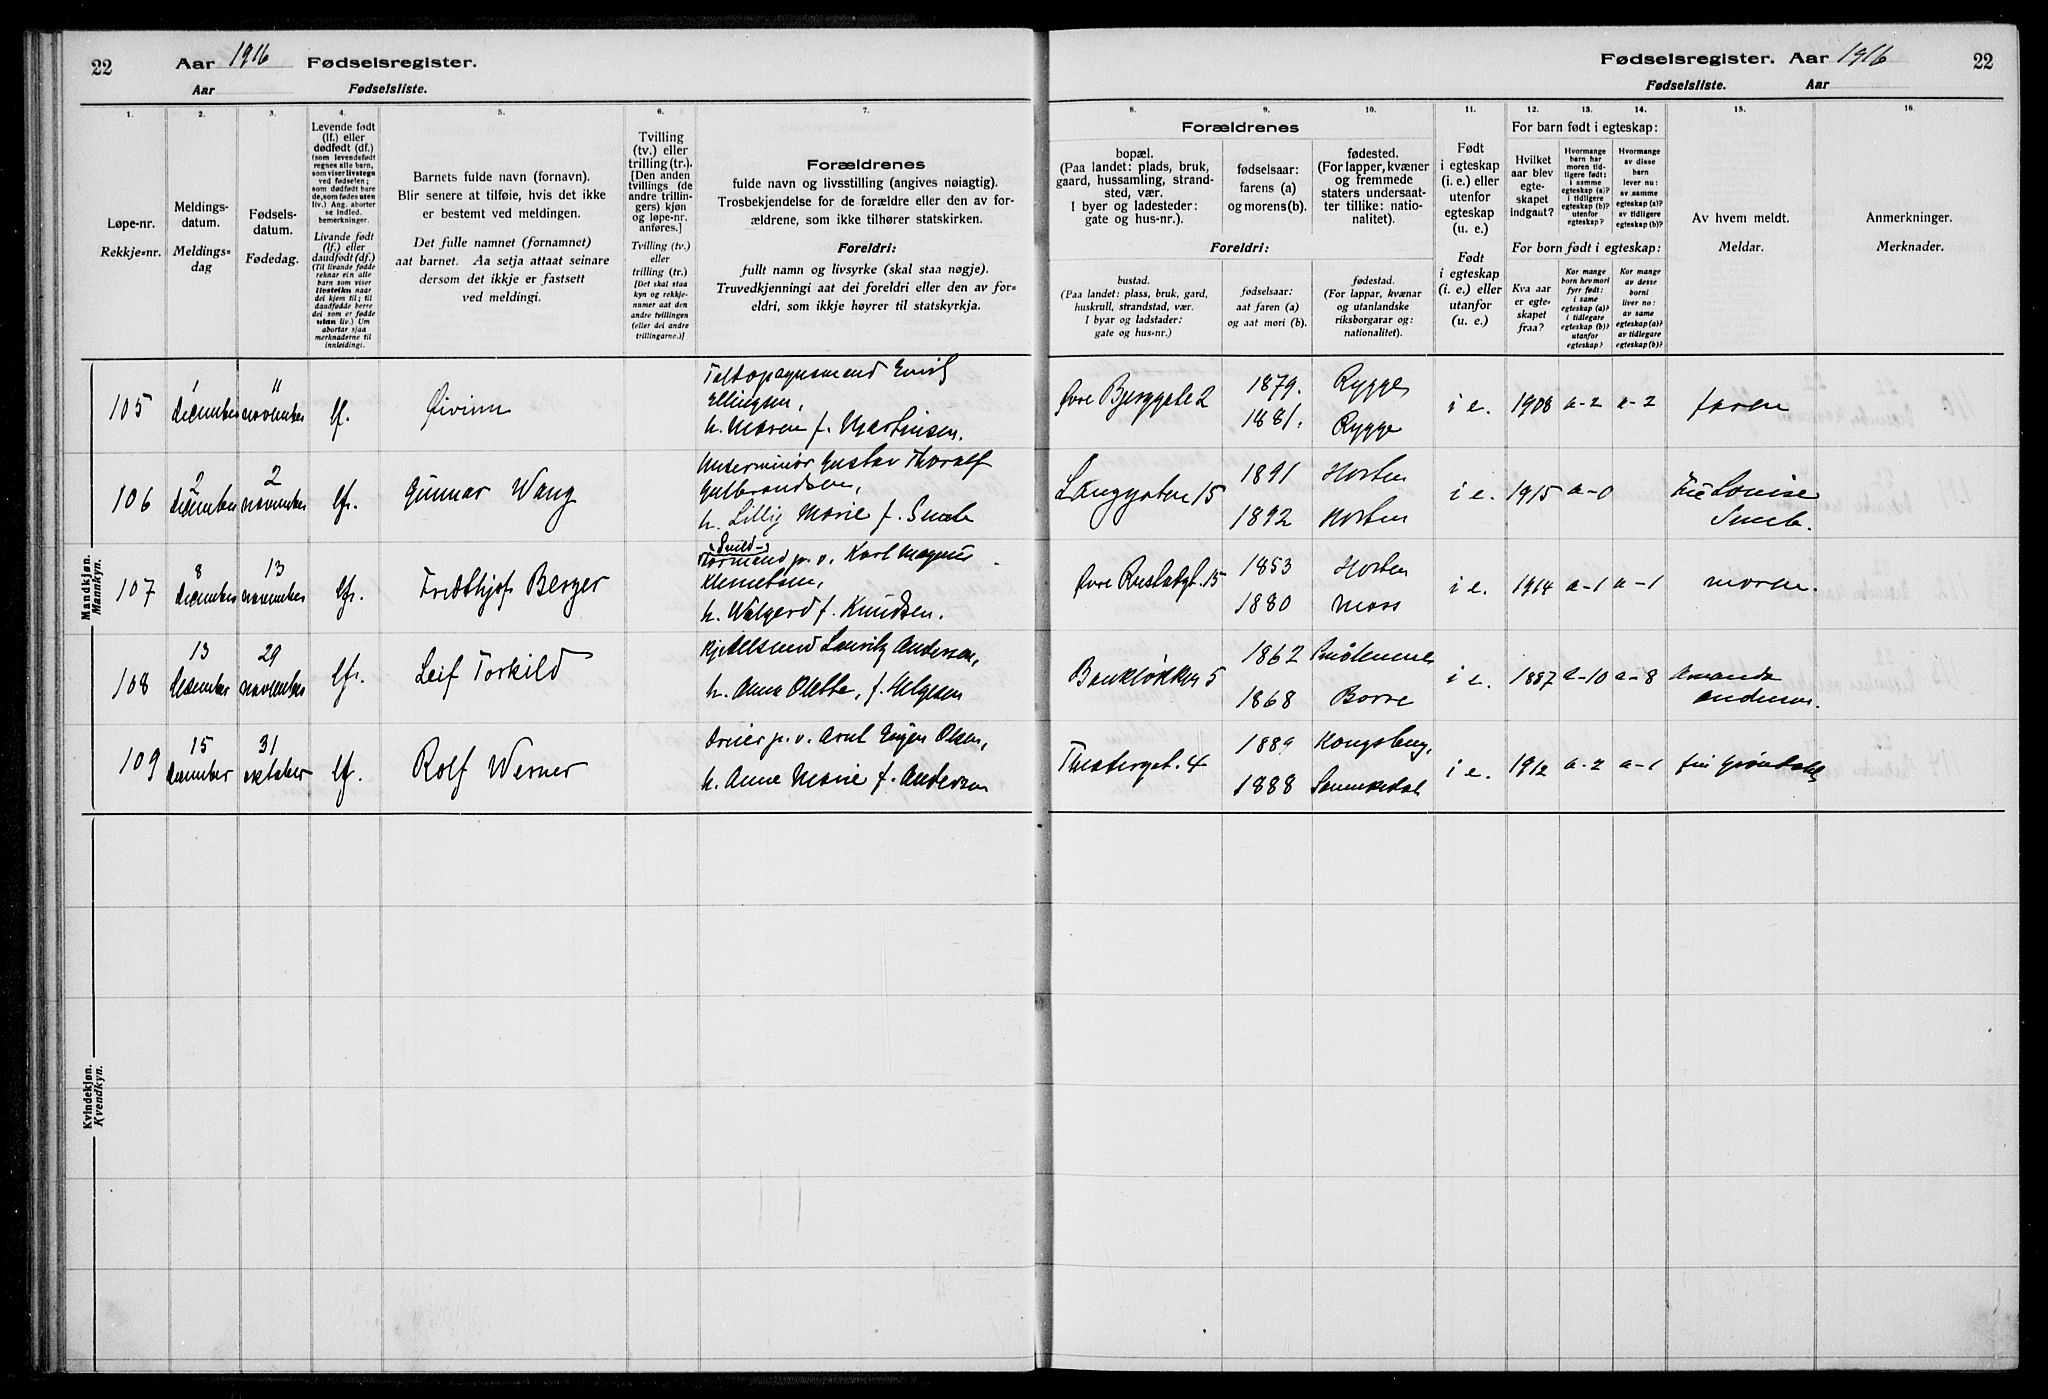 22 Aar 1916 Fødselsregister.
Aar Fødselsliste.
Fødselsregister. Aar 1916 22
Fødselsliste. Aar
1. 2. 3. 4. 5. 6. 7.
8. 9. 10. 11. 12. 13. 14. 15. 16.
Løpe-nr.
Rekkje=nr.
Meldings-
datum.
Meldings=
dag
Fødsels-
datum.
Fødedag.
Levende født
(lf.) eller
dødfødt (df.)
(som levendefødt
regnes alle barn,
som viser livstegn
ved fødselen;
som dødfødt bare
de, som fødes uten
liv.) Ang. aborter
se indled.
bemerkninger.
Livande født
(lf.) eller
daudfødt (df.)
(Til livande fødde
reknar ein alle
barn som viser
livsteikn naar
dei kjem til; til
daudfødde berre
dei som er fødde
utan liv.) Um
abortar sjaa
merknaderne til
innleidingi.
Barnets fulde navn (fornavn).
Blir senere at tilføie, hvis det ikke
er bestemt ved meldingen.
Det fulle namnet (fornamnet)
aat barnet. Aa setja attaat seinare
dersom det ikkje er fastsett
ved meldingi.
Tvilling
(tv.) eller
trilling (tr.).
[Den anden
tvillings (de
andre trillin-
gers) kjøn
og løpe-nr.
anføres.]
Tvilling (tv.)
eller
trilling (tr.)
[Det skal staa
kyn og rekkje-
numer aat den
andre tvillingen
(eller dei andre
trillingarne.)]
Forældrenes
fulde navn og livsstilling (angives nøiagtig).
Trosbekjendelse for de forældre eller den av for-
ældrene, som ikke tilhører statskirken.
Foreldri:
fullt namn og livsyrke (skal staa nøgje).
Truvedkjenningi aat dei foreldri eller den av for=
eldri, som ikkje høyrer til statskyrkja.
Forældrenes
bopæl.
(Paa landet: plads, bruk,
gaard, hussamling, strand-
sted, vær.
I byer og ladesteder:
gate og hus-nr.).
fødselsaar:
farens (a)
og morens (b).
fødested.
(For lapper, kvæner
og fremmede
staters undersaat-
ter tillike: natio-
nalitet).
Foreldri:
bustad.
(Paa landet: plass, bruk, gard,
huskrull, strandstad, vær.
I byar og ladstader:
gate og hus-nr.)
fødselsaar:
aat faren (a)
og aat mori (b).
fødestad.
(For lappar, kvænar
og utanlandske
riksborgarar og:
nationalitet).
Født
i egteskap
(i. e.) eller
utenfor
egteskap
(u. e.)
Født
i egteskap
(i. e.) eller
utanfor
(u. e.)
For barn født i egteskap:
Hvilket
aar blev
egte-
skapet
indgaat?
Hvormange
barn har
moren tid-
ligere født:
i samme
egteskap (a)?
i tidligere
egteskap (b)?
utenfor
egteskap?
Hvormange
av disse
barn
lever nu:
av samme
egteskap (a)?
av tidligere
egteskap (b)?
For born født i egteskap:
Kva aar
er egte-
skapet
fraa?
Kor mange
born hev mori
fyrr født:
i same
egteskap (a)?
i tidlegare
egteskap (b)?
utanfor
egteskap?
Kor mange
av desse
borni
liver no:
av same
egteskap (a)?
av tidlegare
egteskap (b)?
Av hvem meldt.
Meldar.
Anmerkninger.
Merknader.
Mandkjøn.
Mannkyn.
105 1 december 11 november lf. Øivinn
Emil
Ellingsen,
h. Maren f. Martinsen.
Øvre Bjerggate 2 1879. Rygge
1881. Rygge
i e. 1908 a-2 a-2 faren
106 2 december 2 november lf. Gunnar Wang
Underminør Gustav Thoralf
Gulbrandsen,
h. Lilly Marie f. Smeb
Langgaten 15 1891 Horten
1892 Horten
i e. 1915 a-0 Fru Louise
Smeb.
107 8 december 13 november lf. Fridthjof Berger
Formand p. v. Karl Magnus
Klemetsen,
h. Walgerd f. Knudsen.
Øvre Rustadgt. 15 1853 Horten
1880 Moss
i e. 1914 a-1 a-1 moren.
108 13 december 29 november lf. Leif Torkild
Kjedelsmed Lauritz Andersen,
h. Anna Olette, f. Helgesen
Bankløkken 5 1862
1868 Borre
i e. 1887 a-10 a-8 Amanda
Andersen.
109 15 december 31 oktober lf. Rolf Werner
Dreier p. v. Arnt Eugen Olsen,
h. Anna Marie f. Andersen
Theatergt. 4 1889 Kongsberg,
1888 Sannikedal
i e. 1912 a-2 a-1 fru Grøndahl
Kvindekjøn.
Kvendkyn.